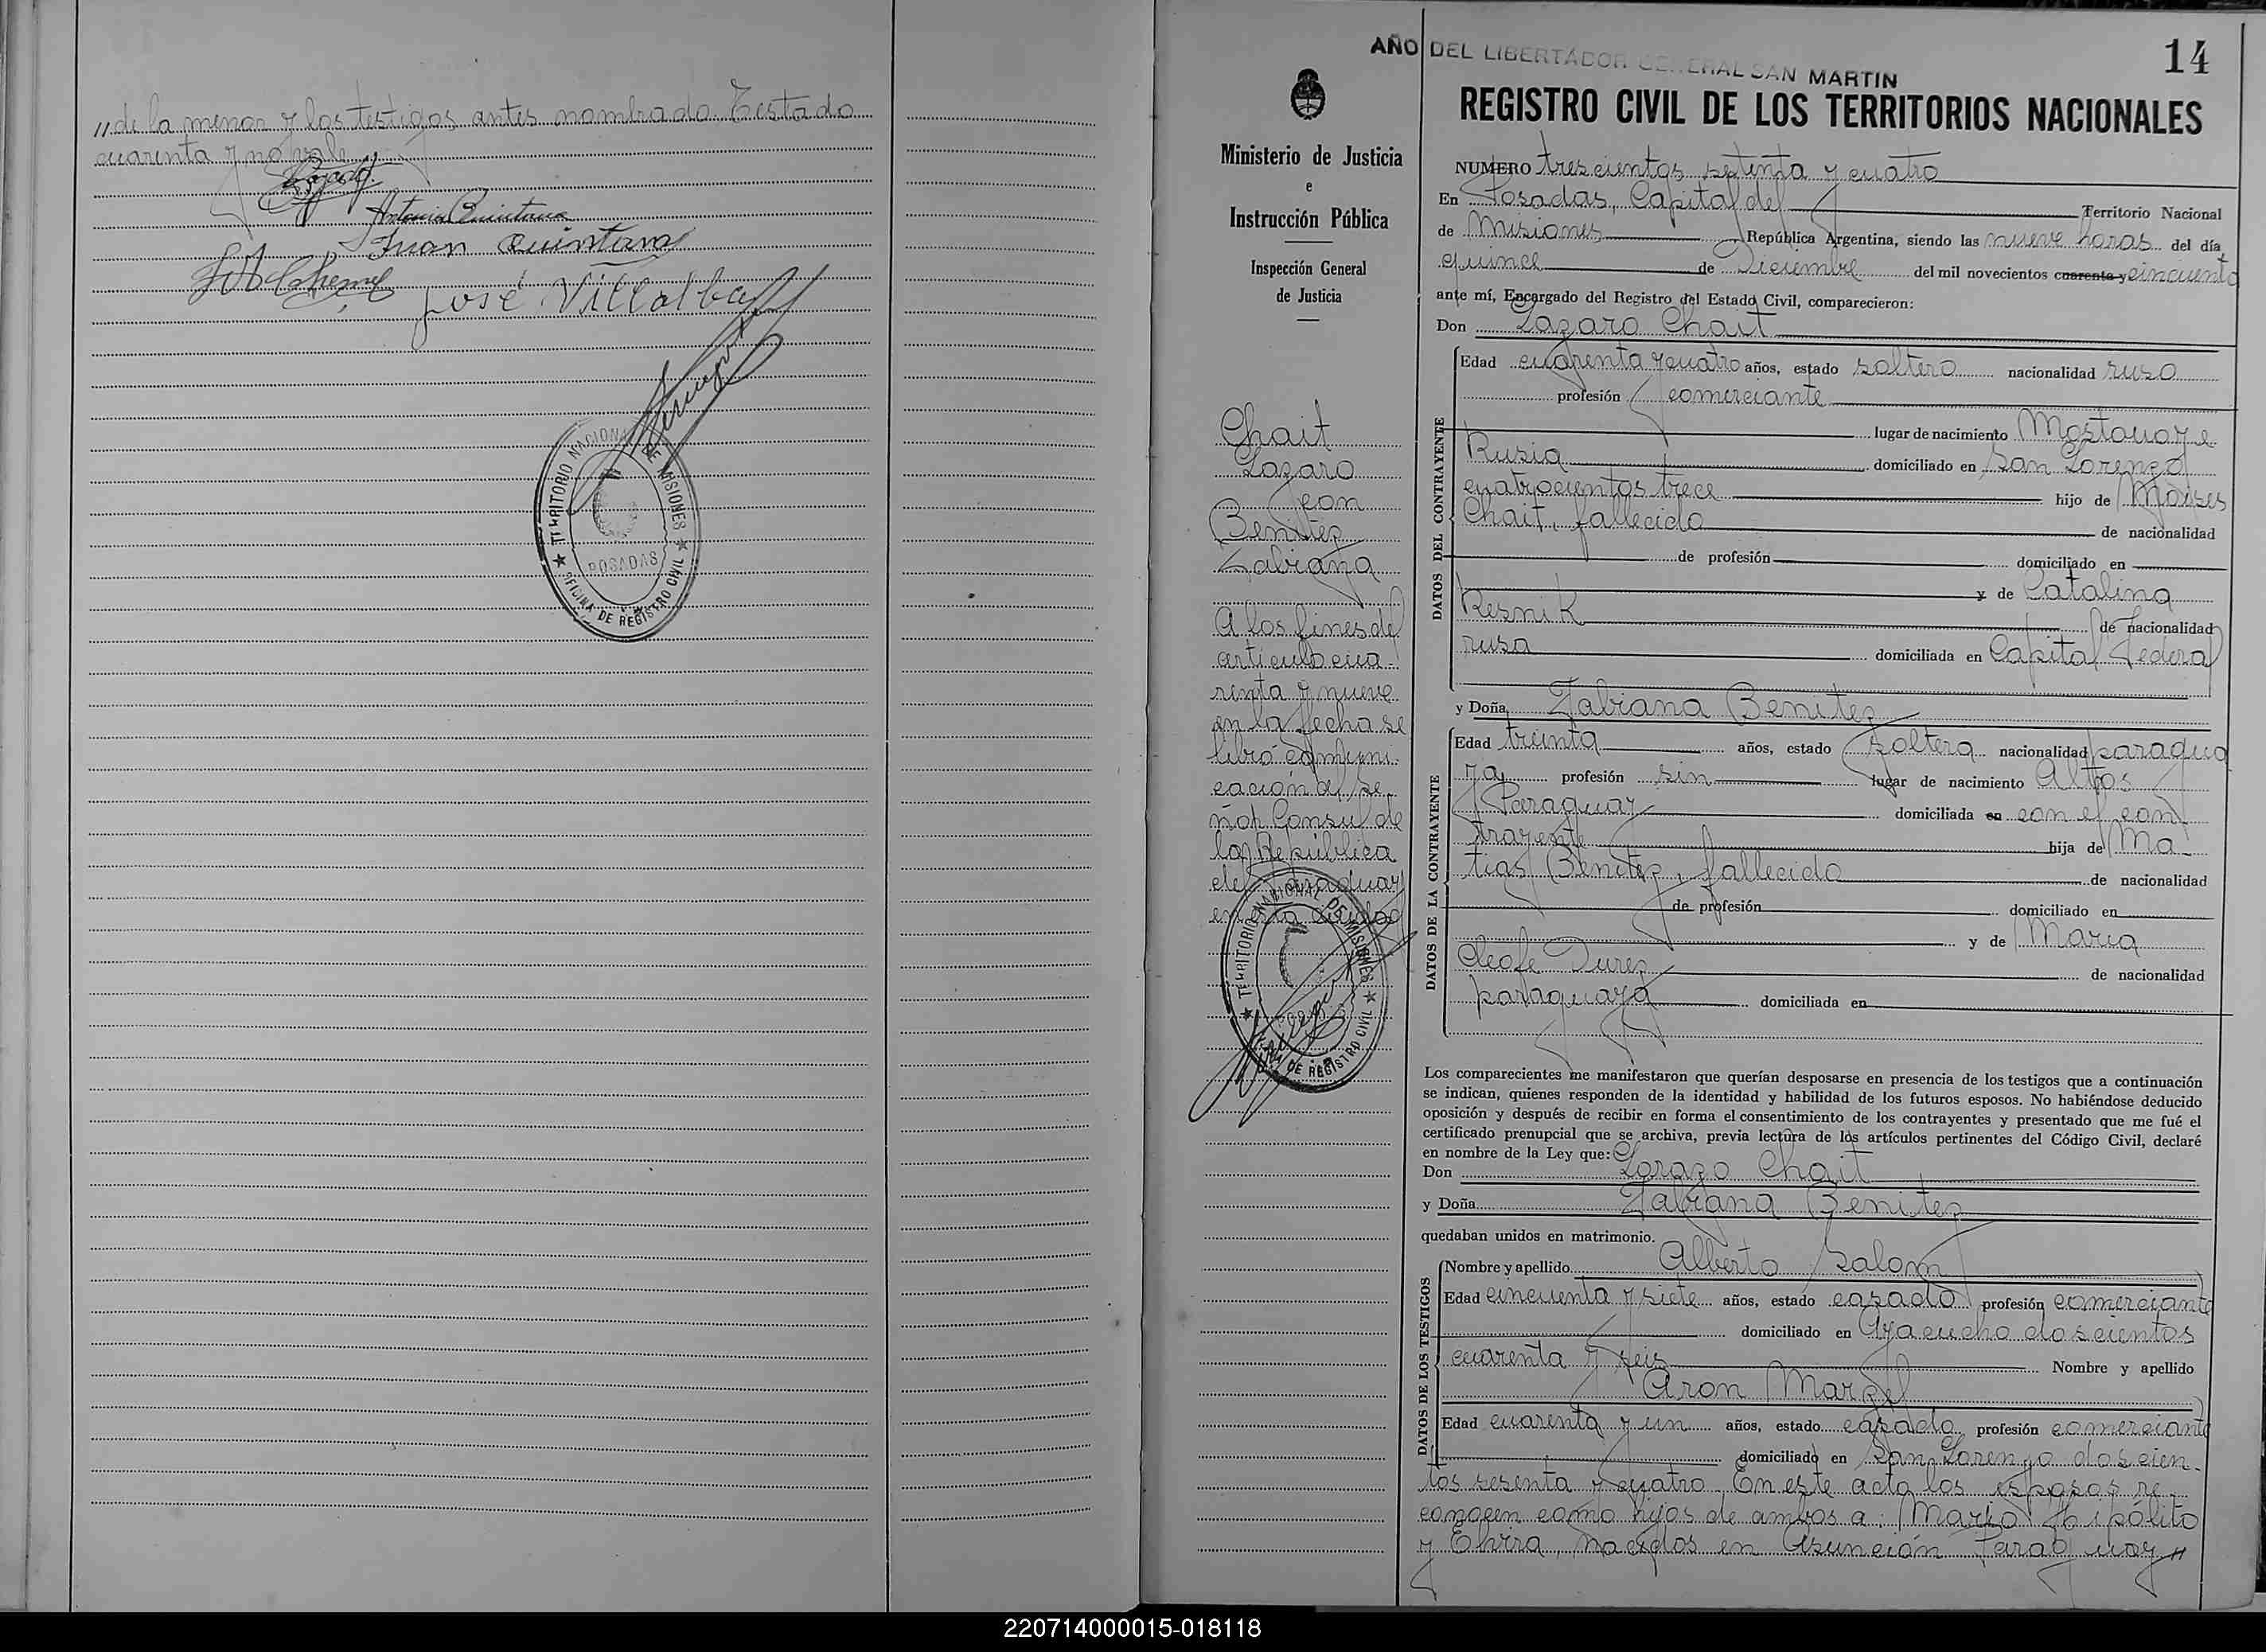 „de la menor y los testigos antes nombrado. Testado
cuarenta y no vale
Antonia Quintana
Juan Quintana
José Villalba
TERRITORIO NACIONAL DE MISIONES
POSADAS
OFICINA DE REGISTRO CIVIL
AÑO DEL LIBERTADOR GENERAL SAN MARTIN
14
Ministerio de Justicia
e
Instrucción Pública
Inspección General
de Justicia
Chait
Lazaro
con
Benitez
Fabiana
A los fines del
articulo cua-
renta y nueve
en la fecha se
libró comuni-
cación al se-
ñor Consul de
la República
del Paraguay
en esta ciudad
TERRITORIO NACIONAL DE MISIONES
OFICINA DE REGISTRO CIVIL
REGISTRO CIVIL DE LOS TERRITORIOS NACIONALES
NUMERO trescientos setenta y cuatro
En Posadas, Capital del Territorio Nacional
de Misiones República Argentina, siendo las nueve horas del día
quince de Diciembre del mil novecientos cuarenta y cincuenta
ante mí, Encargado del Registro del Estado Civil, comparecieron:
Don Lazaro Chait
DATOS DEL CONTRAYENTE
Edad cuarenta y cuatro años, estado soltero nacionalidad ruso
profesión comerciante
lugar de nacimiento Mostouoye
Rusia domiciliado en San Lorenzo
cuatrocientos trece hijo de Moises
Chait, fallecido de nacionalidad
de profesión domiciliado en
y de Catalina
Resnik de nacionalidad
rusa domiciliada en Capital Federal
y Doña Fabiana Benitez
DATOS DE LA CONTRAYENTE
Edad treinta años, estado soltera nacionalidad paragua
ya profesión sin lugar de nacimiento Altos
Paraguay domiciliada en con el con
trayente hija de Ma-
tias Benitez, fallecido de nacionalidad
de profesión domiciliado en
y de Maria
Cleofe Durez de nacionalidad
paraguaya domiciliada en
Los comparecientes me manifestaron que querían desposarse en presencia de los testigos que a continuación
se indican, quienes responden de la identidad y habilidad de los futuros esposos. No habiéndose deducido
oposición y después de recibir en forma el consentimiento de los contrayentes y presentado que me fué el
certificado prenupcial que se archiva, previa lectura de los artículos pertinentes del Código Civil, declaré
en nombre de la Ley que:
Don Lorazo Chait
y Doña Fabiana Benitez
quedaban unidos en matrimonio.
DATOS DE LOS TESTIGOS
Nombre y apellido Alberto Salom
Edad cincuenta y siete años, estado casado profesión comerciante
domiciliado en Ayacucho doscientos
cuarenta y seis Nombre y apellido
Aron Marzel
Edad cuarenta y un años, estado casado profesión comerciante
domiciliado en San Lorenzo doscien-
tos sesenta y cuatro. En este acto los esposos re-
conocen como hijos de ambos a: Mario Hipólito
y Elvira, nacidos en Asunción Paraguay „
220714000015-018118